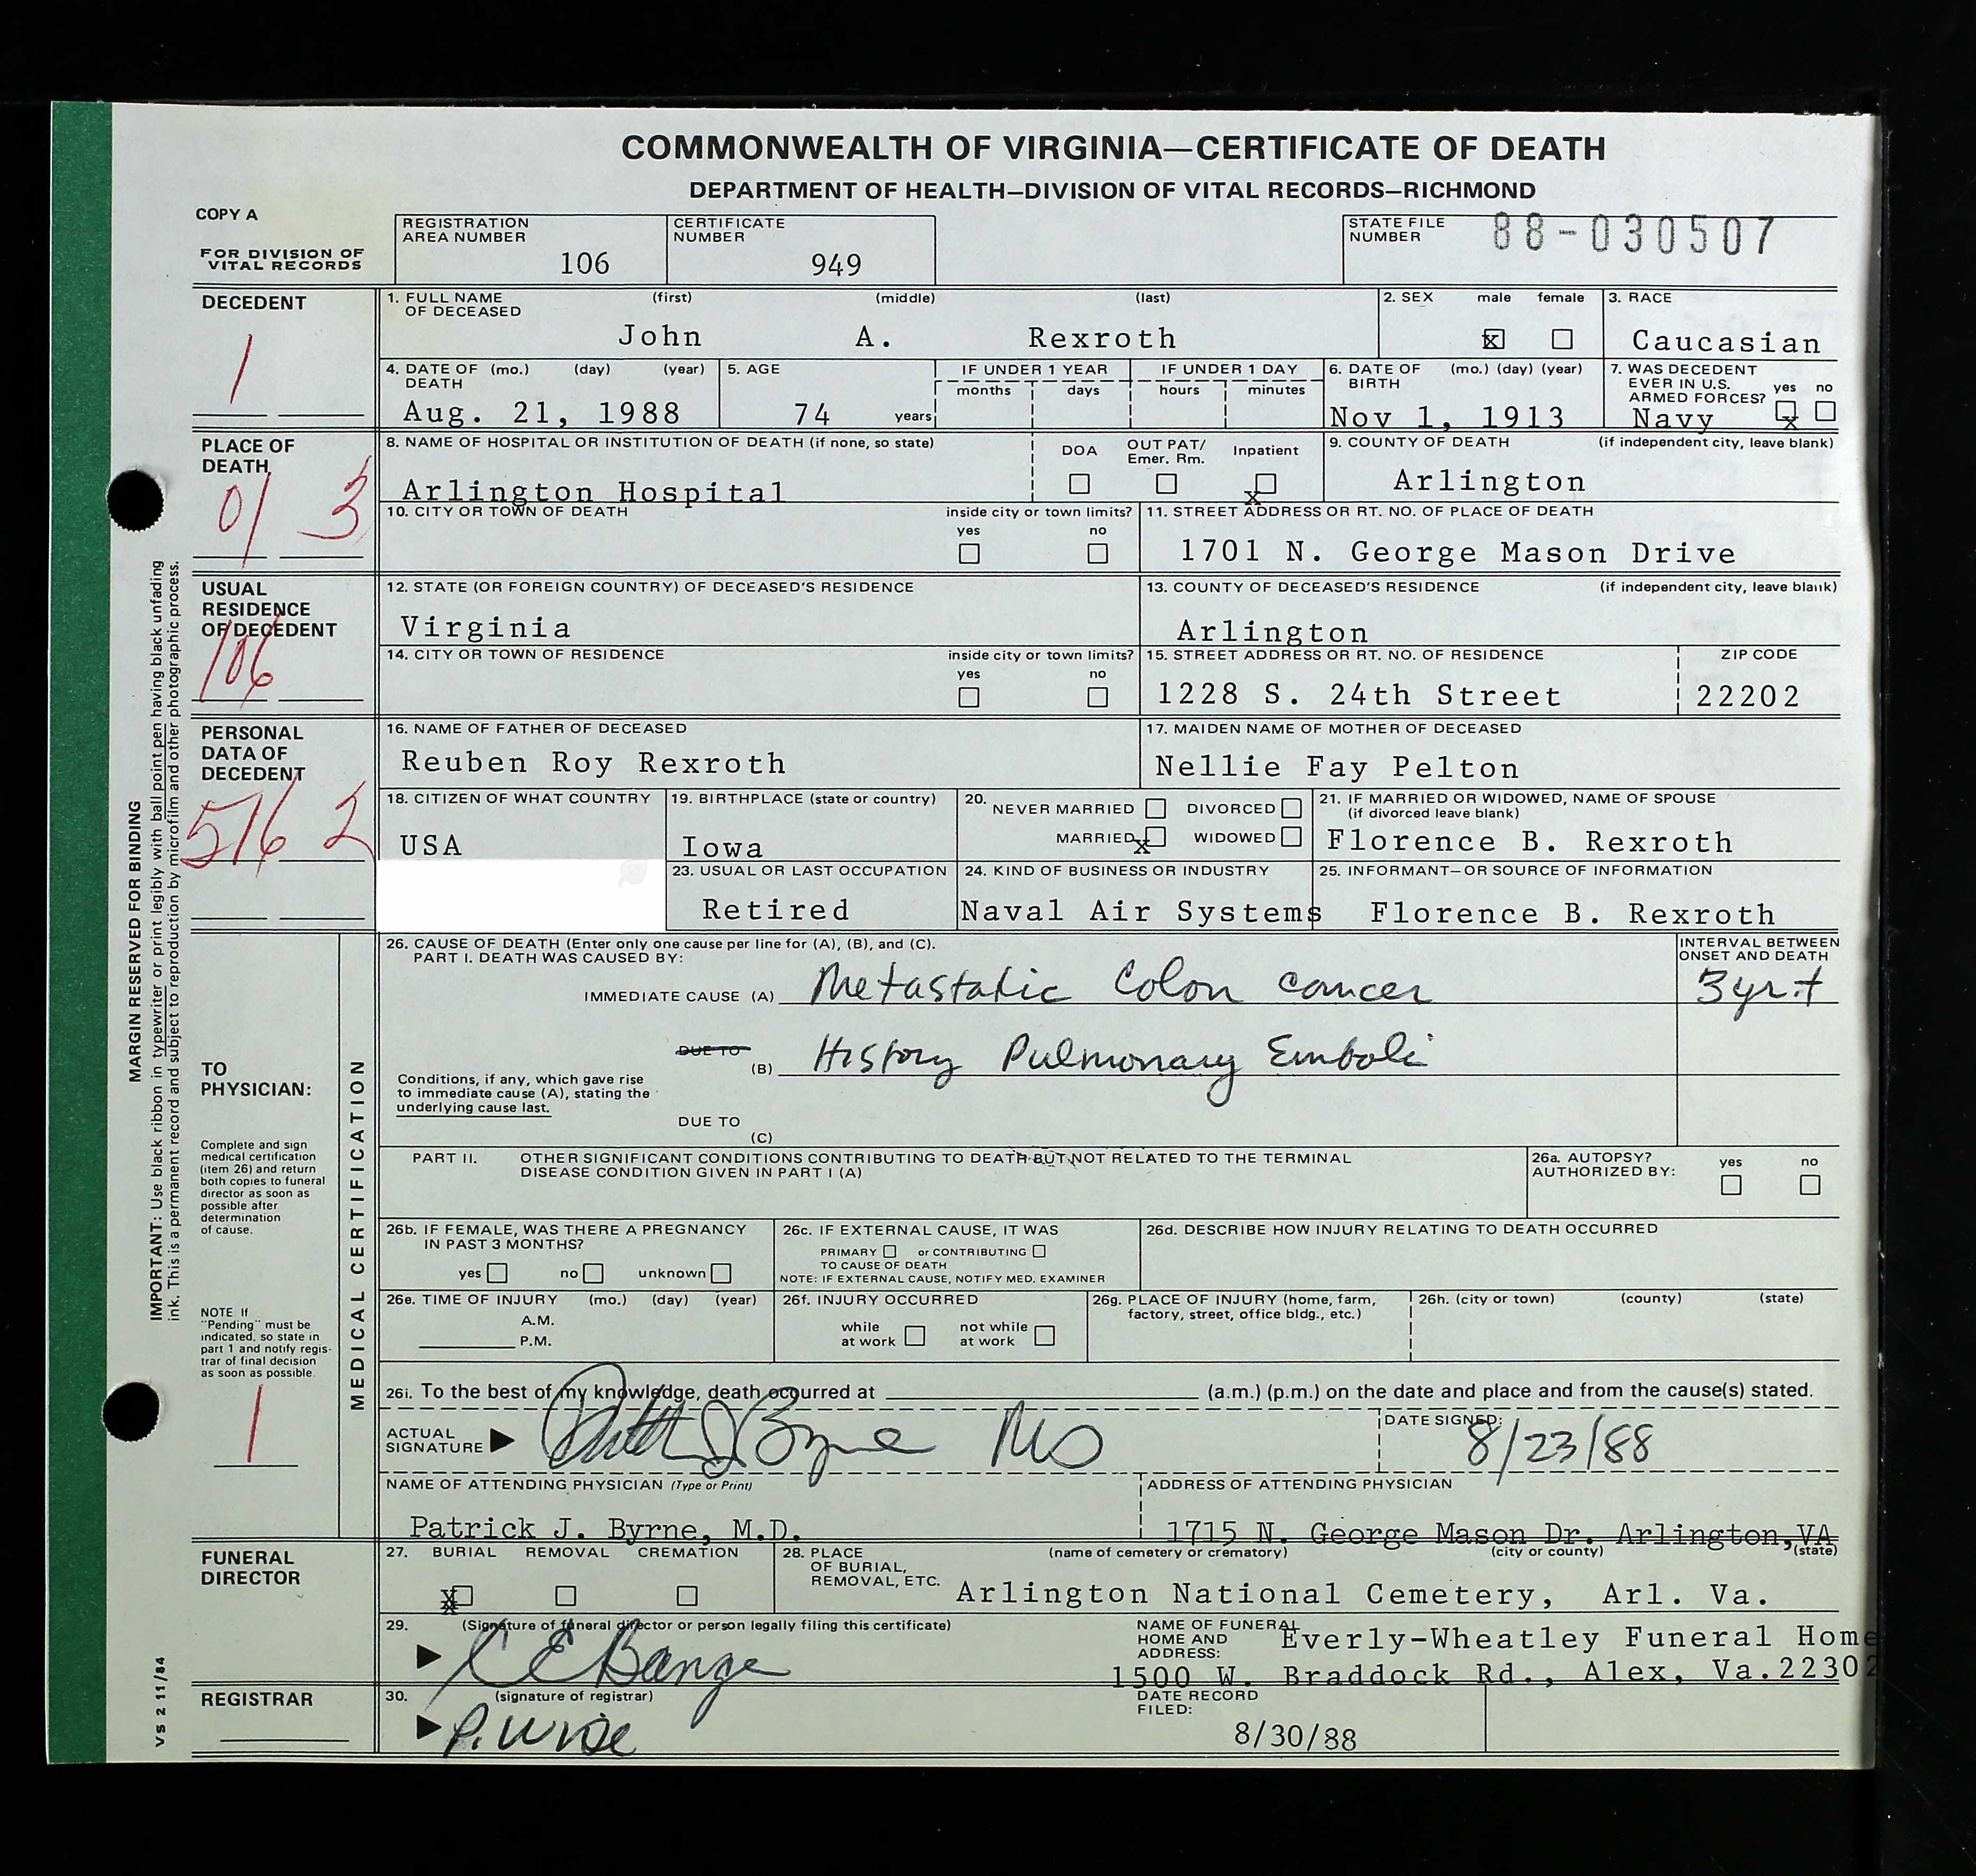 COMMONWEALTH OF VIRGINIA—CERTIFICATE OF DEATH
DEPARTMENT OF HEALTH—DIVISION OF VITAL RECORDS—RICHMOND
COPY A
FOR DIVISION OF
VITAL RECORDS
REGISTRATION
AREA NUMBER
106
CERTIFICATE
NUMBER
949
STATE FILE
NUMBER
88-030507
DECEDENT
1
1. FULL NAME (first) (middle) (last)
OF DECEASED
John A. Rexroth
2. SEX male female
x
3. RACE
Caucasian
4. DATE OF (mo.) (day) (year)
DEATH
Aug. 21, 1988
5. AGE
74 years
IF UNDER 1 YEAR
months days
IF UNDER 1 DAY
hours minutes
6. DATE OF (mo.) (day) (year)
BIRTH
Nov 1, 1913
7. WAS DECEDENT
EVER IN U.S. yes no
ARMED FORCES?
Navy x
PLACE OF
DEATH
01 3
8. NAME OF HOSPITAL OR INSTITUTION OF DEATH (if none, so state)
Arlington Hospital
DOA OUT PAT/ Emer. Rm. Inpatient
x
9. COUNTY OF DEATH (if independent city, leave blank)
Arlington
10. CITY OR TOWN OF DEATH
inside city or town limits?
yes no
11. STREET ADDRESS OR RT. NO. OF PLACE OF DEATH
1701 N. George Mason Drive
USUAL
RESIDENCE
OF DECEDENT
106
12. STATE (OR FOREIGN COUNTRY) OF DECEASED'S RESIDENCE
Virginia
13. COUNTY OF DECEASED'S RESIDENCE (if independent city, leave blank)
Arlington
14. CITY OR TOWN OF RESIDENCE
inside city or town limits?
yes no
15. STREET ADDRESS OR RT. NO. OF RESIDENCE
1228 S. 24th Street
ZIP CODE
22202
PERSONAL
DATA OF
DECEDENT
516 2
16. NAME OF FATHER OF DECEASED
Reuben Roy Rexroth
17. MAIDEN NAME OF MOTHER OF DECEASED
Nellie Fay Pelton
18. CITIZEN OF WHAT COUNTRY
USA
19. BIRTHPLACE (state or country)
Iowa
20.
NEVER MARRIED DIVORCED
MARRIED x WIDOWED
21. IF MARRIED OR WIDOWED, NAME OF SPOUSE
(if divorced leave blank)
Florence B. Rexroth
23. USUAL OR LAST OCCUPATION
Retired
24. KIND OF BUSINESS OR INDUSTRY
Naval Air Systems
25. INFORMANT—OR SOURCE OF INFORMATION
Florence B. Rexroth
MARGIN RESERVED FOR BINDING
IMPORTANT: Use black ribbon in typewriter or print legibly with ball point pen having black unfading
ink. This is a permanent record and subject to reproduction by microfilm and other photographic process.
VS 2 11/84
TO
PHYSICIAN:
Complete and sign
medical certification
(item 26) and return
both copies to funeral
director as soon as
possible after
determination
of cause.
NOTE If
"Pending" must be
indicated, so state in
part 1 and notify regis-
trar of final decision
as soon as possible.
1
MEDICAL CERTIFICATION
26. CAUSE OF DEATH (Enter only one cause per line for (A), (B), and (C).
PART I. DEATH WAS CAUSED BY:
INTERVAL BETWEEN
ONSET AND DEATH
IMMEDIATE CAUSE (A) Metastatic Colon cancer
3 yr +
DUE TO
(B) History Pulmonary Emboli
Conditions, if any, which gave rise
to immediate cause (A), stating the
underlying cause last.
DUE TO
(C)
PART II. OTHER SIGNIFICANT CONDITIONS CONTRIBUTING TO DEATH BUT NOT RELATED TO THE TERMINAL
DISEASE CONDITION GIVEN IN PART I (A)
26a. AUTOPSY? yes no
AUTHORIZED BY:
26b. IF FEMALE, WAS THERE A PREGNANCY
IN PAST 3 MONTHS?
yes no unknown
26c. IF EXTERNAL CAUSE, IT WAS
PRIMARY or CONTRIBUTING
TO CAUSE OF DEATH
NOTE: IF EXTERNAL CAUSE, NOTIFY MED. EXAMINER
26d. DESCRIBE HOW INJURY RELATING TO DEATH OCCURRED
26e. TIME OF INJURY (mo.) (day) (year)
A.M.
P.M.
26f. INJURY OCCURRED
while at work not while at work
26g. PLACE OF INJURY (home, farm,
factory, street, office bldg., etc.)
26h. (city or town) (county) (state)
26i. To the best of my knowledge, death occurred at (a.m.) (p.m.) on the date and place and from the cause(s) stated.
ACTUAL
SIGNATURE
Patrick J Byrne MD
DATE SIGNED:
8/23/88
NAME OF ATTENDING PHYSICIAN (Type or Print)
Patrick J. Byrne, M.D.
ADDRESS OF ATTENDING PHYSICIAN
1715 N. George Mason Dr. Arlington, VA
FUNERAL
DIRECTOR
27. BURIAL REMOVAL CREMATION
X
28. PLACE
OF BURIAL,
REMOVAL, ETC.
(name of cemetery or crematory) (city or county) (state)
Arlington National Cemetery, Arl. Va.
29. (Signature of funeral director or person legally filing this certificate)
C E Bange
NAME OF FUNERAL
HOME AND
ADDRESS:
Everly-Wheatley Funeral Home
1500 W. Braddock Rd., Alex, Va.22302
REGISTRAR
30. (signature of registrar)
P. Wise
DATE RECORD
FILED:
8/30/88